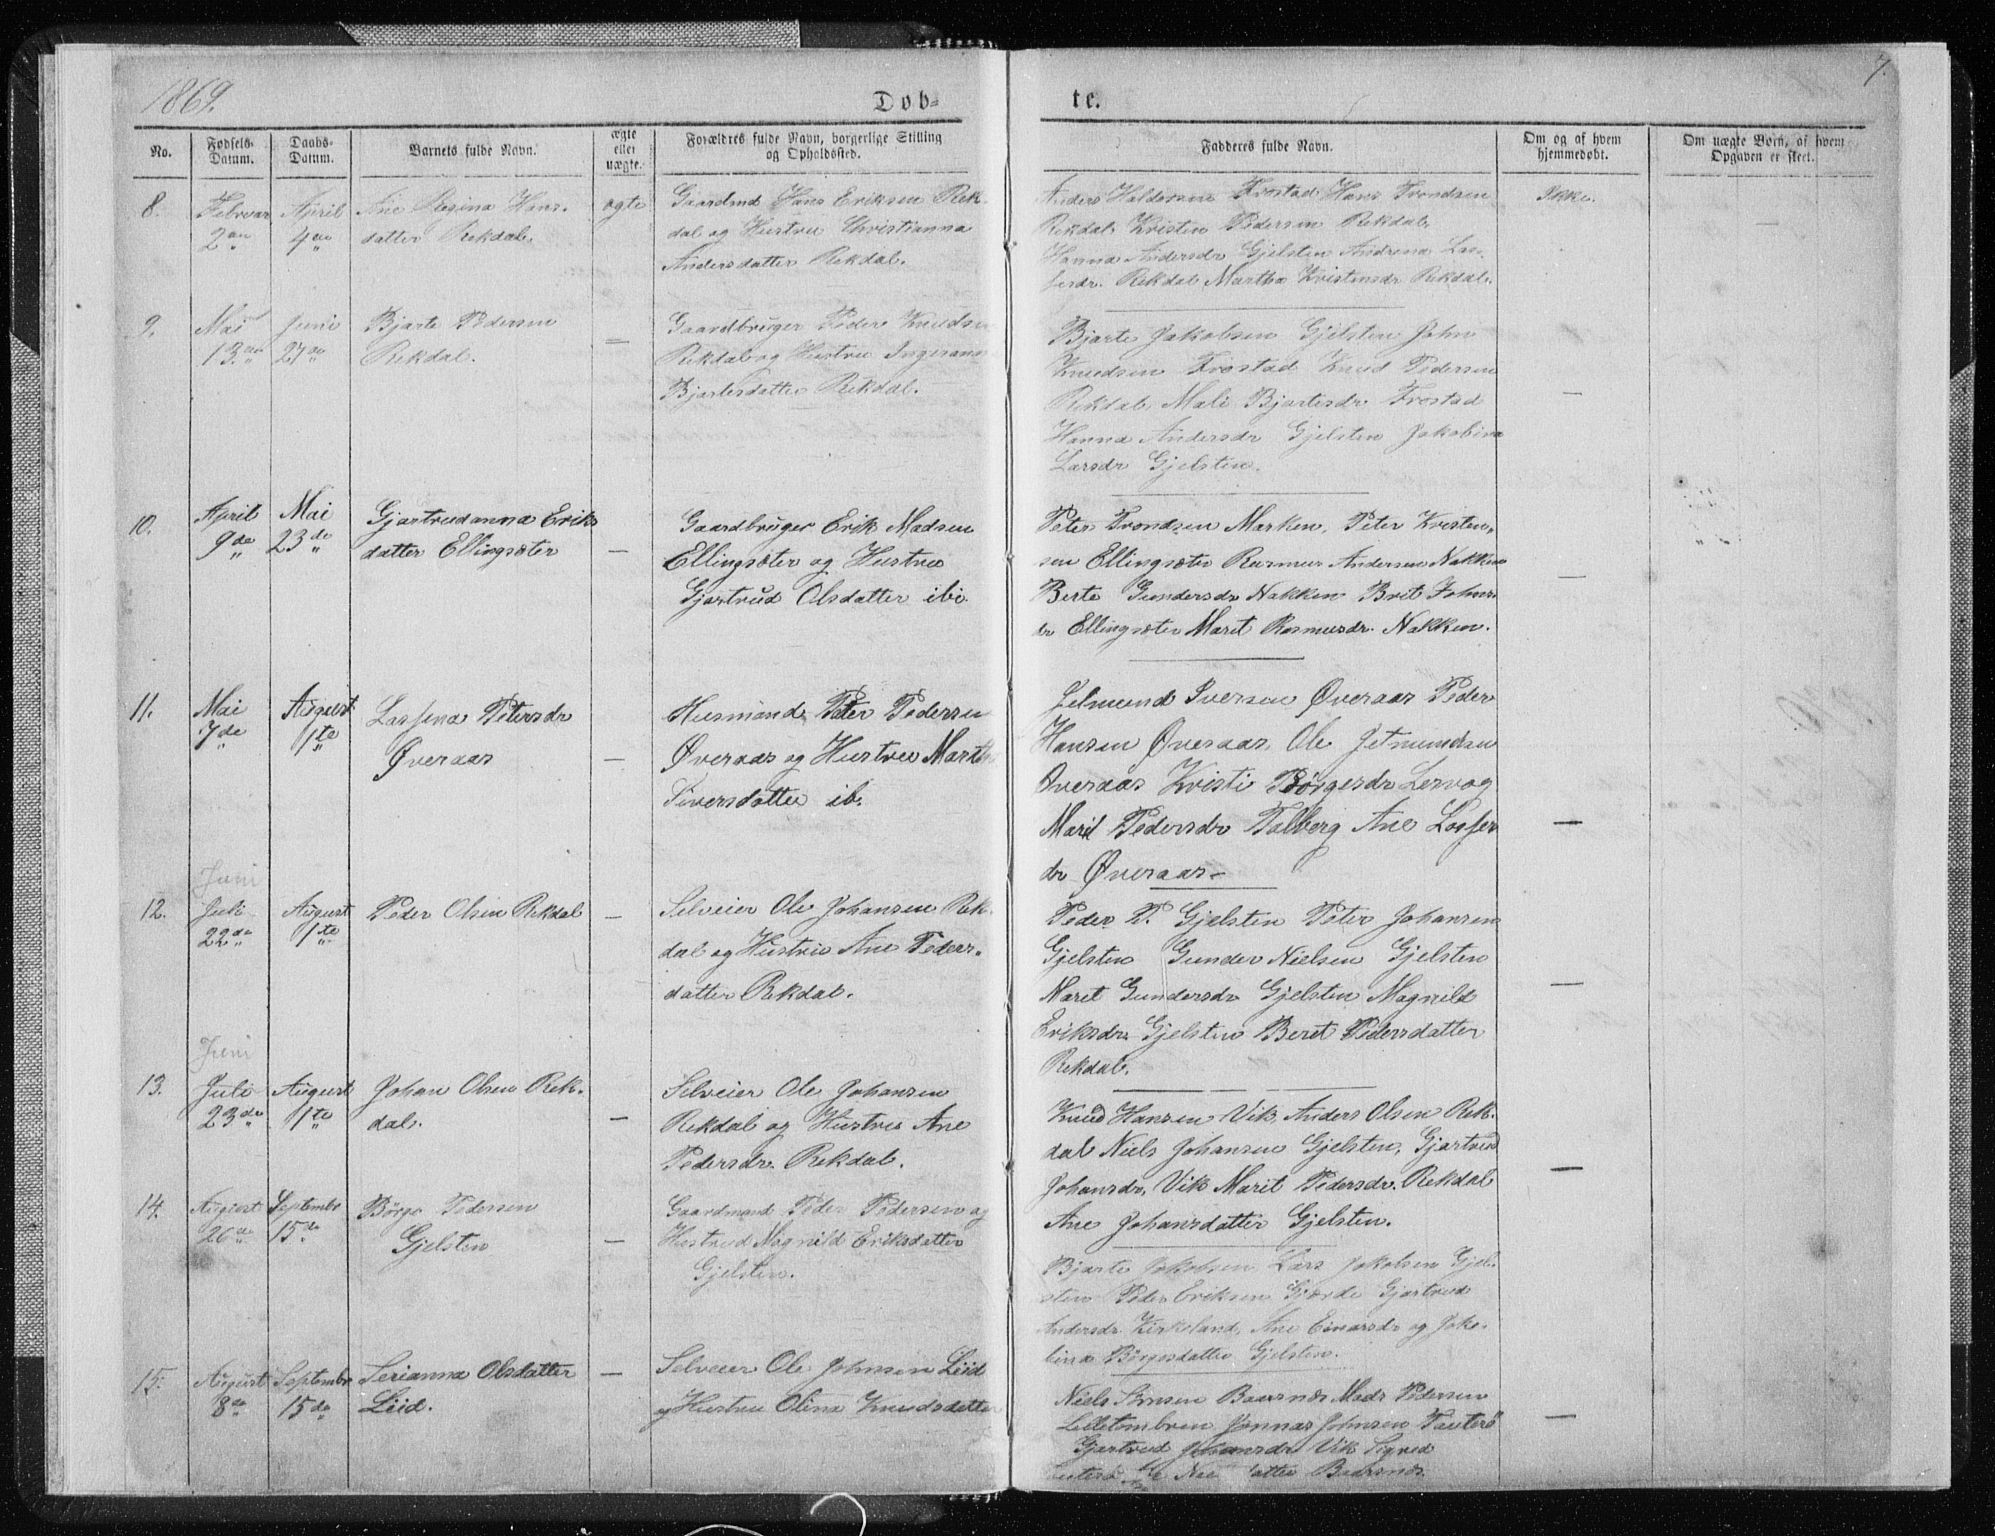 1869.
Døb-
te.
7.
No.
Fødsels-
Datum.
Daabs-
Datum.
Barnets fulde Navn.
ægte
eller
uægte.
Forældres fulde Navn, borgerlige Stilling
og Opholdssted.
Fadderes fulde Navn.
Om og af hvem
hjemmedøbt.
Om uægte Børn, af hvem
Opgaven er skeet.
8.
Februar
2den
April
4de
Ane Regina Hans-
datter Rekdal.
ægte
Gaardmd Hans Eriksen Rek-
dal og Hustru Christianna
Andersdatter Rekdal.
Anders Haldorsen Frostad Hans Trondsen
Rekdal Kristen Pedersen Rekdal.
Hanna Andersdr Gjelsten Andrena Las-
sesdr. Rekdal Martha Kristensdr Rekdal.
Ikke.
9.
Mai
13.de
Juni
27de
Bjarte Pedersen
Rekdal.
—
Gaardbruger Peder Knudsen
Rekdal og Hustru Ingeranna
Bjartesdatter Rekdal.
Bjarte Jakobsen Gjelsten John
Knudsen Frostad Knud Pedersen
Rekdal, Mali Bjartesdr Frostad
Hanna Andersdr Gjelsten Jakobina
Larsdr Gjelsten.
—
10.
April
9de
Mai
23de
Gjartrudanna Eriks
datter Ellingsæter
—
Gaardbruger Erik Madsen
Ellingsæter og Hustru
Gjartrud Olsdatter ibi.
Peter Trondsen Marken, Peter Kristen-
sen Ellingsæter Rasmus Andersen Nakken
Berte Gundersdr Nakken Brit Johns
dr Ellingsæter Marit Rasmusdr. Nakken.
—
11.
Mai
7de
August
1te
Lassena Petersdr
Øveraas
—
Husmand Peter Pedersen
Øveraas og Hustru Martha
Siversdatter ib.
Jetmund Iversen Øveraas Peder
Hansen Øveraas, Ole Jetmundsen
Øveraas Kristi Børgesdr Lervog
Marit Pedersdr Talberg Ane Lasses
dr Øveraas
—
Juni
12.
Juli
22de
August
1te
Peder Olsen Rekdal
—
Selveier Ole Johansen Rek-
dal og Hustru Ane Peders-
datter Rekdal.
Peder P. Gjelsten Peter Johansen
Gjelsten Gunder Nielsen Gjelsten
Marit Gundersdr Gjelsten Magnild
Eriksdr. Gjelsten Beret Pedersdatter
Rekdal.
—
Juni
13.
Juli
23de
August
1te
Johan Olsen Rek-
dal.
—
Selveier Ole Johansen
Rekdal og Hustru Ane
Pedersdr. Rekdal.
Knud Hansen Vik, Anders Olsen Rek-
dal Niels Johansen Gjelsten, Gjartrud
Johansdr, Vik Marit Pedersdr. Rekdal
Ane Johansdatter Gjelsten.
—
14.
August
26de
Septembr
15de
Børge Pedersen
Gjelsten
—
Gaardmand Peder Pedersen og
Hustrud Magnild Eriksdatter
Gjelsten.
Bjarte Jakobsen Lars Jakobsen Gjel-
sten Peder Eriksen Gjærde Gjartrud
Andersdr Kirkeland, Ane Einarsdr og Jako-
bina Børgesdatter Gjelsten.
15.
August
8de
Septembr
15de
Serianna Olsdatter
Liid.
—
Selveier Ole Johnsen Liid
og Hustru Olina Knudsdatter
Niels Baarsnes Mads Pedersen
Lilletombren Jonnas Johnsen Tauterø
Gjartrud Johansdr Vik Sigrid
datter Baarsnæs.
—